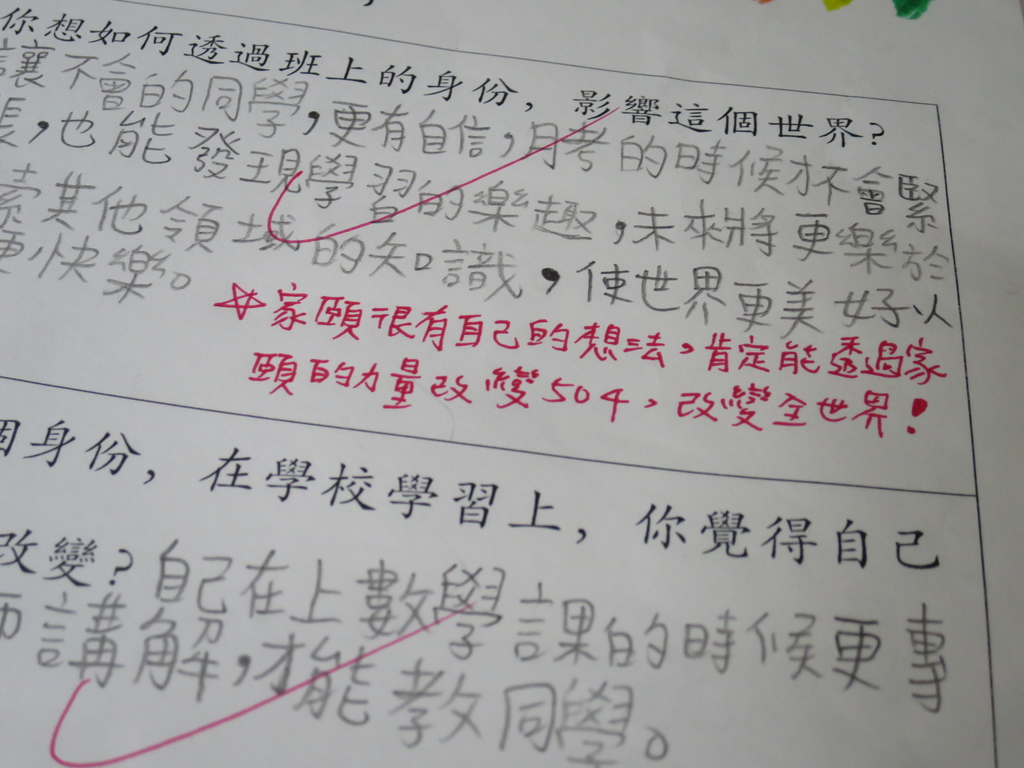 你想如何透過班上的身份，影響這個世界？
讓不會的同學，更有自信，月考的時候才不會緊
張，也能發現學習的樂趣，未來將更樂於
索其他領域的知識，使世界更美好以
更快樂。
☆家頤很有自己的想法，肯定能透過家
頤的力量改變504，改變全世界！
個身份，在學校學習上，你覺得自己
改變？自己在上數學課的時候更專
師講解，才能教同學。